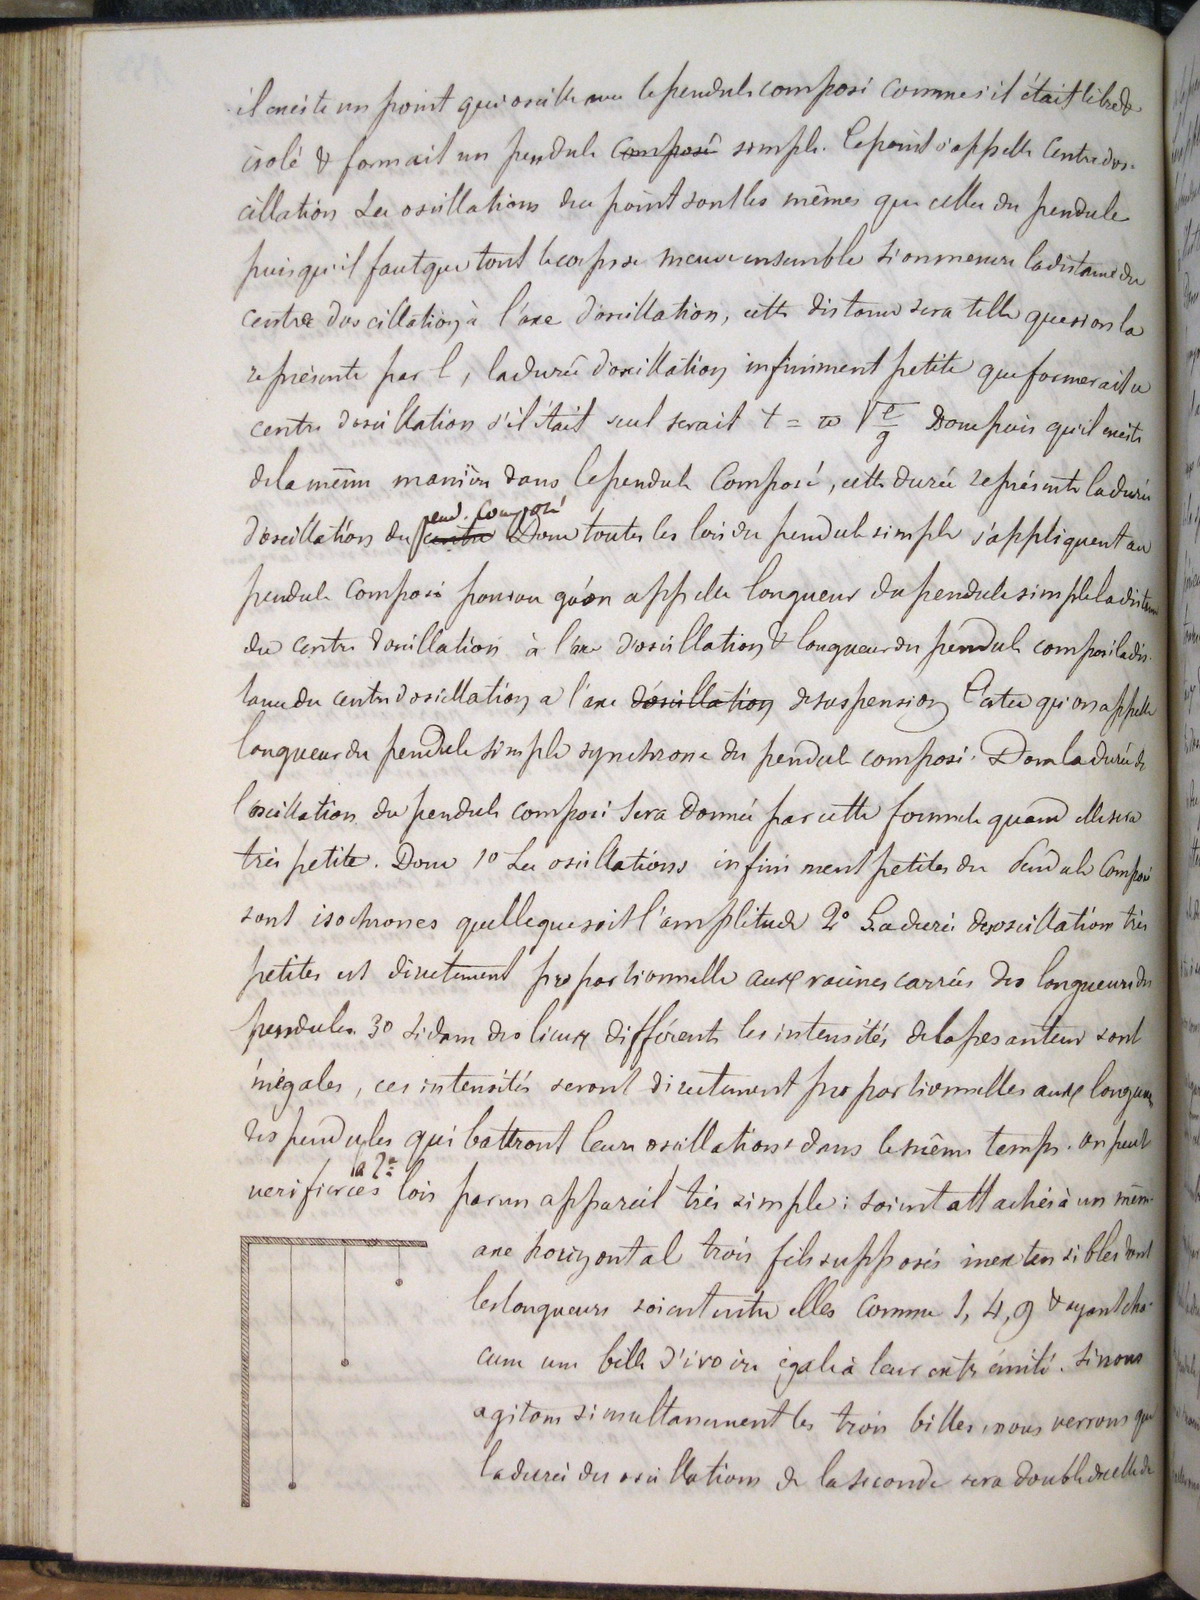 il existe un point qui oscille avec le pendule composé comme s'il était libre &
isolé & formait un pendule composé simple. Ce point s'appelle Centre d'os-
cillation Les oscillations du point sont les mêmes que celles du pendule
puisqu'il faut que tout le corps se meuve ensemble Si on mesure la distance du
centre d'oscillation à l'axe d'oscillation, cette distance sera telle que si on la
représente par l, la durée d'oscillation infiniment petite que formerait ce
centre d'oscillation s'il était seul serait t = π √l/g Donc puis qu'il existe
de la même manière dans le pendule Composé, cette durée représente la durée
d'oscillation du centre pend. Composé Donc toutes les lois du pendule simple s'appliquent au
pendule composé pourvu qu'on appelle longueur du pendule simple la distance
du centre d'oscillation à l'axe d'oscillation & longueur du pendule composé la dis-
tance du centre d'oscillation à l'axe d'oscillation de suspension C'est ce qu'on appelle
longueur du pendule simple synchrone du pendule composé. Donc la durée de
l'oscillation du pendule composé sera donnée par cette formule quand elle sera
très petite. Donc 1o Les oscillations infiniment petites du Pendule Composé
sont isochrones quelle que soit l'amplitude 2o La durée des oscillations très
petites est directement proportionnelle aux racines carrées des longueurs des
pendules. 3o Si dans des lieux différents les intensités de la pesanteur sont
inégales, ces intensités seront directement proportionnelles aux longueurs
des pendules qui battront leurs oscillations dans le même temps. on peut
vérifier ces la 2e lois par un appareil très simple : soient attachés à un même
axe horizontal trois fils supposés inextensibles dont
les longueurs soient entre elles comme 1, 4, 9 & ayant cha-
cun une bille d'ivoire égale à leur extrémité. Si nous
agitons simultanément les trois billes, nous verrons que
la durée des oscillations de la seconde sera double de celle de